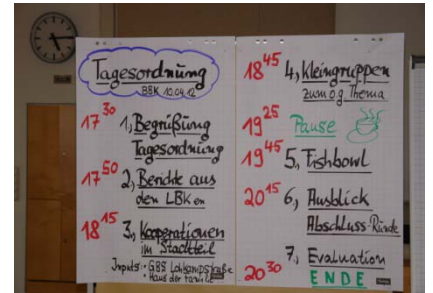 Tagesordnung
BBK 10.04.12
17 30 1, Begrüßung
Tagesordnung
17 50 2, Berichte aus
den LBKen
18 15 3, Kooperationen
im Stadtteil
Inputs: • GBS
• Haus der Familie
18 45 4, Kleingruppen
zum o.g. Thema
19 25 Pause
19 45 5, Fishbowl
20 15 6, Ausblick
Abschluss-Runde
7, Evaluation
20 30 ENDE